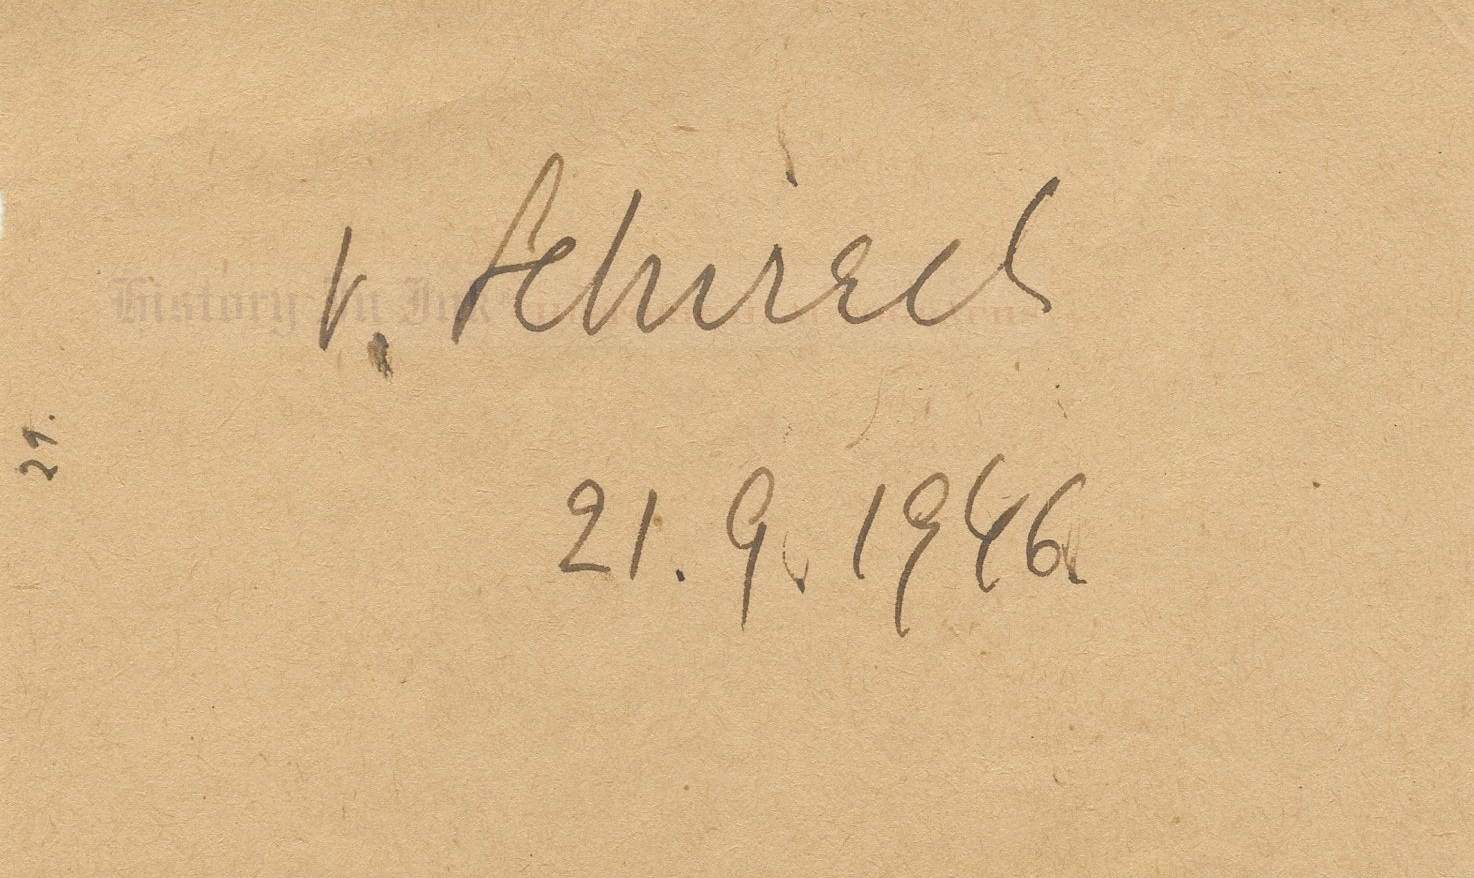 History In Ink
v. Schirach
21. 9. 1946.
21.